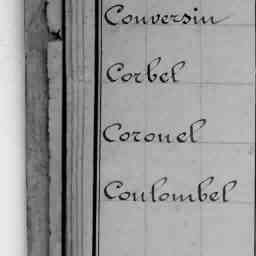 Conversin
Corbel
Coronel
Coulombel